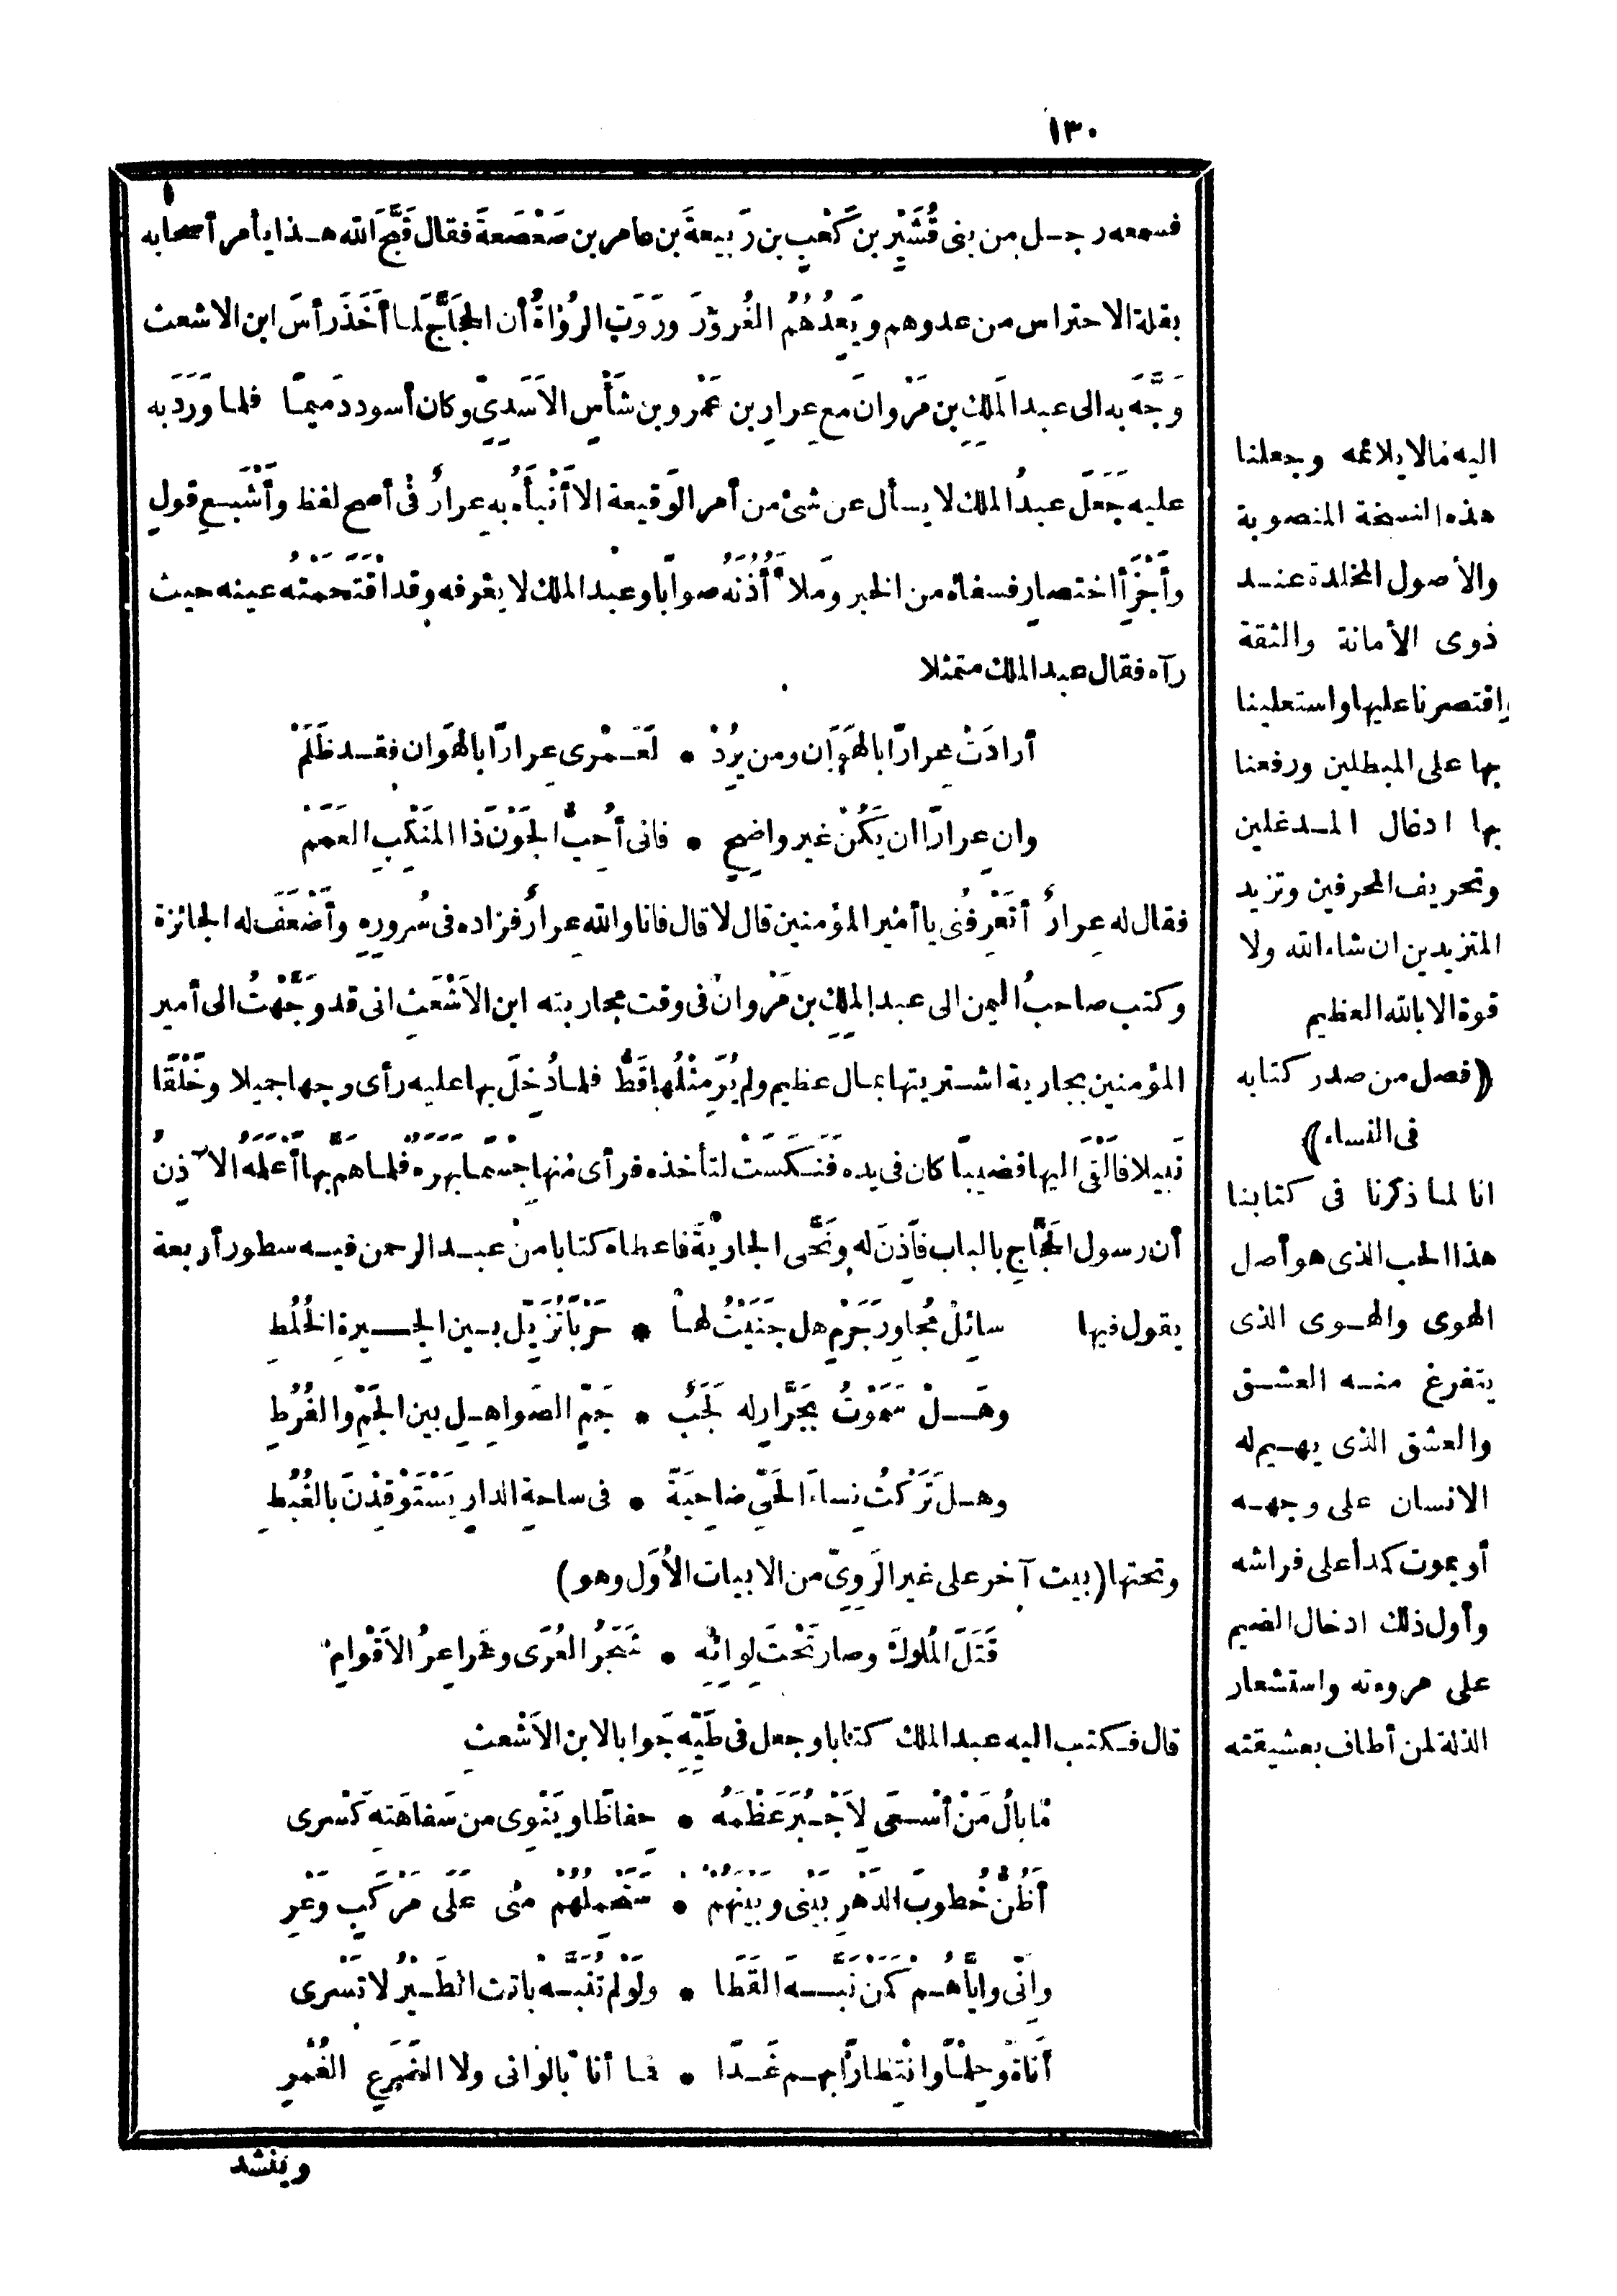 ١٣٠
فسمعه رجل من بنى قُشَيْرِ بن كَعْبِ بن رَبيعةَ بن عامر بن صَعْصَعةَ فقال قَبَّحَ الله هذا يأمر أصحابه
بقلة الاحتراس من عدوهم ويَعِدُهُمُ الغُرورَ ورَوَتِ الرُّواةُ أن الحَجَّاجَ لما أَخَذَ رأسَ ابن الاشعث
وَجَّهَ به الى عبد المَلِكِ بن مَرْوانَ مع عِرارِ بن عَمْرِو بن شَأْسٍ الاَسَدِىِّ وكان أسود دَميمًا فلما وَرَدَ به
عليه جَعَلَ عبدُ الملك لا يسأل عن شئ من أمر الوَقيعة الا أَنْبأَه به عرارٌ فى أصح لفظ وأَشْبَعِ قولٍ
وأَجْزَإِ اختصارٍ فسفاه من الخبر ومَلأَ أُذُنَه صوابًا وعبد الملك لا يعْرِفه وقد اقْتَحَمَتْه عينه حيث
رآه فقال عبد الملك متمثلا
أرادَتْ عِرارًا بالهَوَانِ ومن يُرِدْ • لَعَمْرى عِرارًا بالهَوان فقد ظَلَمْ
وان عِرارًا ان يَكُنْ غير واضحٍ • فانى أُحِبُّ الجَوْنَ ذا المَنْكِبِ العَمَمْ
فقال له عِرارٌ أَتَعْرِفُنى يا أمير المؤمنين قال لا قال فانا والله عِرارٌ فزاده فى سُرورِه وأَضْعَفَ له الجائزة
وكتب صاحبُ اليمن الى عبد المَلِكِ بن مَرْوان فى وقت محاربته ابن الاَشْعَثِ انى قد وَجَّهْتُ الى أمير
المؤمنين بجارية اشتريتها بمال عظيم ولم يُرَ مِثْلُها قَطُّ فلما دُخِلَ بها عليه رأى وجها جميلا وخَلْقًا
نَبيلا فأَلْقَى اليها قضيبًا كان فى يده فَنَكَسَتْ لتأخذه فرأى منها جِسْمًا بَهَرَه فلما هَمَّ بها أَعْلَمَهُ الآذِنُ
أن رسول الحَجَّاجِ بالباب فأَذِنَ له ونَحَّى الجاريَةَ فاعطاه كتابا من عبد الرحمن فيه سطور أربعة
يقول فيها سائِلْ مُجاوِرَ جَرْمٍ هل جَنَيْتُ لها • حَرْبًا تُزَيِّلُ بين الجِيرةِ الخُلُطِ
وهَلْ سَمَوْتُ بِجَرَّارٍ له لَجَبٌ • جَمِّ الصَواهِلِ بين الجَمِّ والفُرُطِ
وهل تَرَكْتُ نِساءَ الحَىِّ ضاحِيَةً • فى ساحةِ الدارِ يَسْتَوْقِدْنَ بالغُبُطِ
وتحتها (بيت آخر على غير الرَوِىِّ من الابيات الأُوَل وهو)
قَتَلَ المُلوكَ وصار تَحْتَ لِوائِه • شَجَرُ العُرَى وعَراعِرُ الاَقْوامِ
قال فكتب اليه عبد الملك كتابا وجعل فى طَيِّهِ جَوابا لابن الاَشْعثِ
ما بالُ مَنْ أَسْعَى لِأَجْبُرَ عَظْمَهُ • حِفاظًا ويَنْوِى من سَفاهَتِهِ كَسْرِى
أَظُنُّ خُطوبَ الدَهْرِ بَيْنِى وبَيْنَهُمْ • سَتَحْمِلُهُمْ مِنّى عَلَى مَرْكَبٍ وَعْرِ
وانِّى وايَّاهُمْ كَمَنْ نَبَّهَ القَطَا • ولَوْ لم تُنَبَّهْ باتت الطَيْرُ لا تَسْرِى
أَناةً وحِلْمًا وانْتِظارًا بهم غَدًا • فما أنا بالوانى ولا الضَّرِعِ الغُمْرِ
وينشد
اليه مالا يلائمه وجعلنا
هذه النسخة المنصوبة
والأصول المخلدة عند
ذوى الأمانة والثقة
واقتصرنا عليها واستعلينا
بها على المبطلين ورفعنا
بها ادغال المدغلين
وتحريف المحرفين وتزيد
المتزيدين ان شاء الله ولا
قوة الا بالله العظيم
(فصل من صدر كتابه
فى النساء)
انا لما ذكرنا فى كتابنا
هذا الحب الذى هو أصل
الهوى والهوى الذى
يتفرغ منه العشق
والعشق الذى يهيم له
الانسان على وجهه
أو يموت كمدا على فراشه
وأول ذلك ادخال الضيم
على مروءته واستشعار
الذلة لمن أطاف بعشيقته